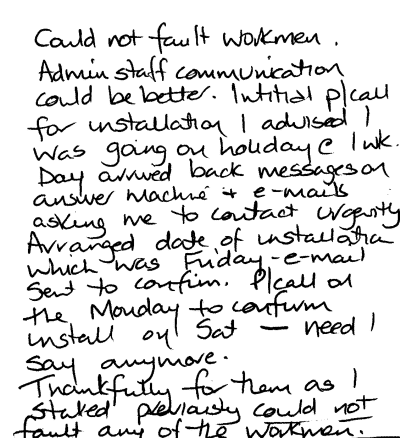 Could not fault workmen.
Admin staff communication
could be better. Intitial p/call
for installation I advised I
was going on holiday C 1 wk.
Day arrived back messages on
answer machine + e-mails
asking me to contact urgently
Arranged date of installation
which was Friday - e-mail
sent to confirm. P/call on
the Monday to confirm
install on Sat — need I
say anymore.
Thankfully for them as I
stated previously could not
fault any of the workmen.